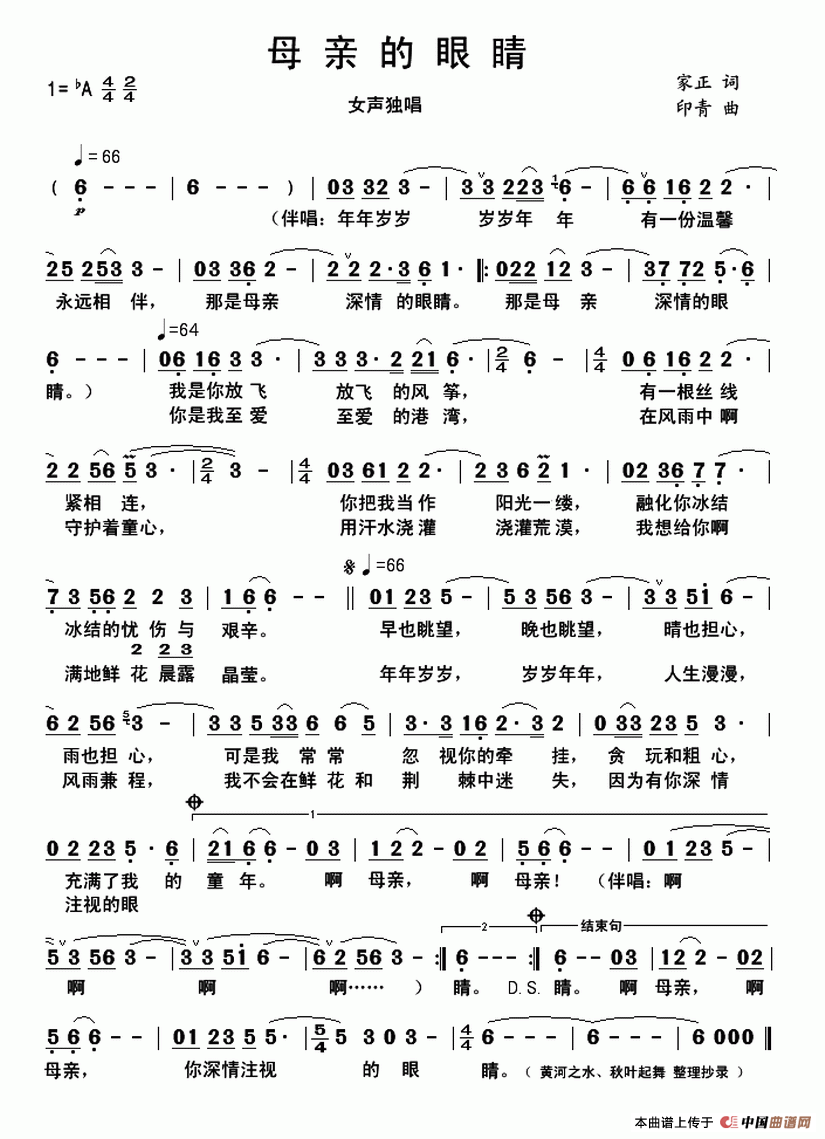 母 亲 的 眼 睛
1= ♭A 4/4 2/4
女声独唱
家正 词
印青 曲
♩= 66
( 6 - - - | 6 - - - ) | 03 32 3 - | 3 3 223 1 6 - | 6 6 16 2 2 · |
p
（伴唱：年年岁岁 岁岁年 年 有一份温馨
25 253 3 - | 03 36 2 - | 2 2 2·3 6 1· |: 022 12 3 - | 37 72 5·6 |
永远相 伴， 那是母亲 深情 的眼睛。 那是母 亲 深情的眼
♩=64
6 - - - | 06 16 3 3 · | 3 3 3·2 21 6 · | 2/4 6 - | 4/4 06 16 2 2 · |
睛。） 我是你放飞 放飞 的风 筝， 有一根丝线
你是我至爱 至爱 的港 湾， 在风雨中啊
2 2 56 5 3 · | 2/4 3 - | 4/4 03 61 2 2· | 2 36 2 1· | 02 36 7 7 · |
紧相 连， 你把我当作 阳光一缕， 融化你冰结
守护着童心， 用汗水浇灌 浇灌荒漠， 我想给你啊
𝄋 ♩=66
7 3 56 2 2 3 | 1 6 6 - - || 01 23 5 - | 5 3 56 3 - | 3 3 51 6 - |
冰结的忧 伤 与 艰辛。 早也眺望， 晚也眺望， 晴也担心，
2 2 3
满地鲜 花 晨露 晶莹。 年年岁岁， 岁岁年年， 人生漫漫，
6 2 56 5 3 - | 3 3 5 33 6 6 5 | 3· 3 16 2·3 2 | 0 33 23 5 3 · |
雨也担 心， 可是我 常常 忽 视你的牵 挂， 贪 玩和粗 心，
风雨兼 程， 我不会在鲜 花 和 荆 棘中迷 失， 因为有你深 情
1
02 23 5 · 6 | 21 6 - 03 | 1 2 2 - 02 | 5 6 6 - - | 01 23 5 - |
充满了我 的 童 年。 啊 母亲， 啊 母亲！ （伴唱：啊
注视的眼
2 结束句
5 3 56 3 - | 3 3 51 6 - | 6 2 56 3 - :| 6 - - - :| 6 - - 03 | 12 2 - 02 |
啊 啊 啊…… ） 睛。 D. S. 睛。 啊 母亲， 啊
5 6 6 - - | 01 23 5 5· | 5/4 5 3 0 3 - | 4/4 6 - - - | 6 - - - | 6 0 0 0 ||
母亲， 你深情注视 的 眼 睛。（ 黄河之水、秋叶起舞 整理抄录 ）
本曲谱上传于 中国曲谱网